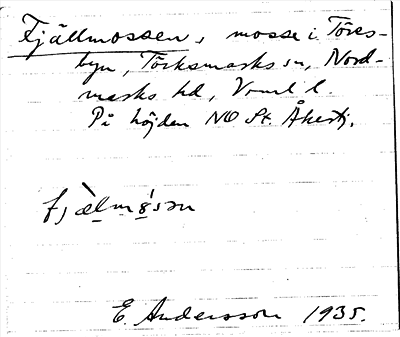 Fjällmossen, mosse i Töres-
byn, Töcksmarks sn, Nord-
marks hd, Vrml. l.
På höjden NO St. Åkertj.
fjæ̀lmɔ́sən
E. Andersson 1935.